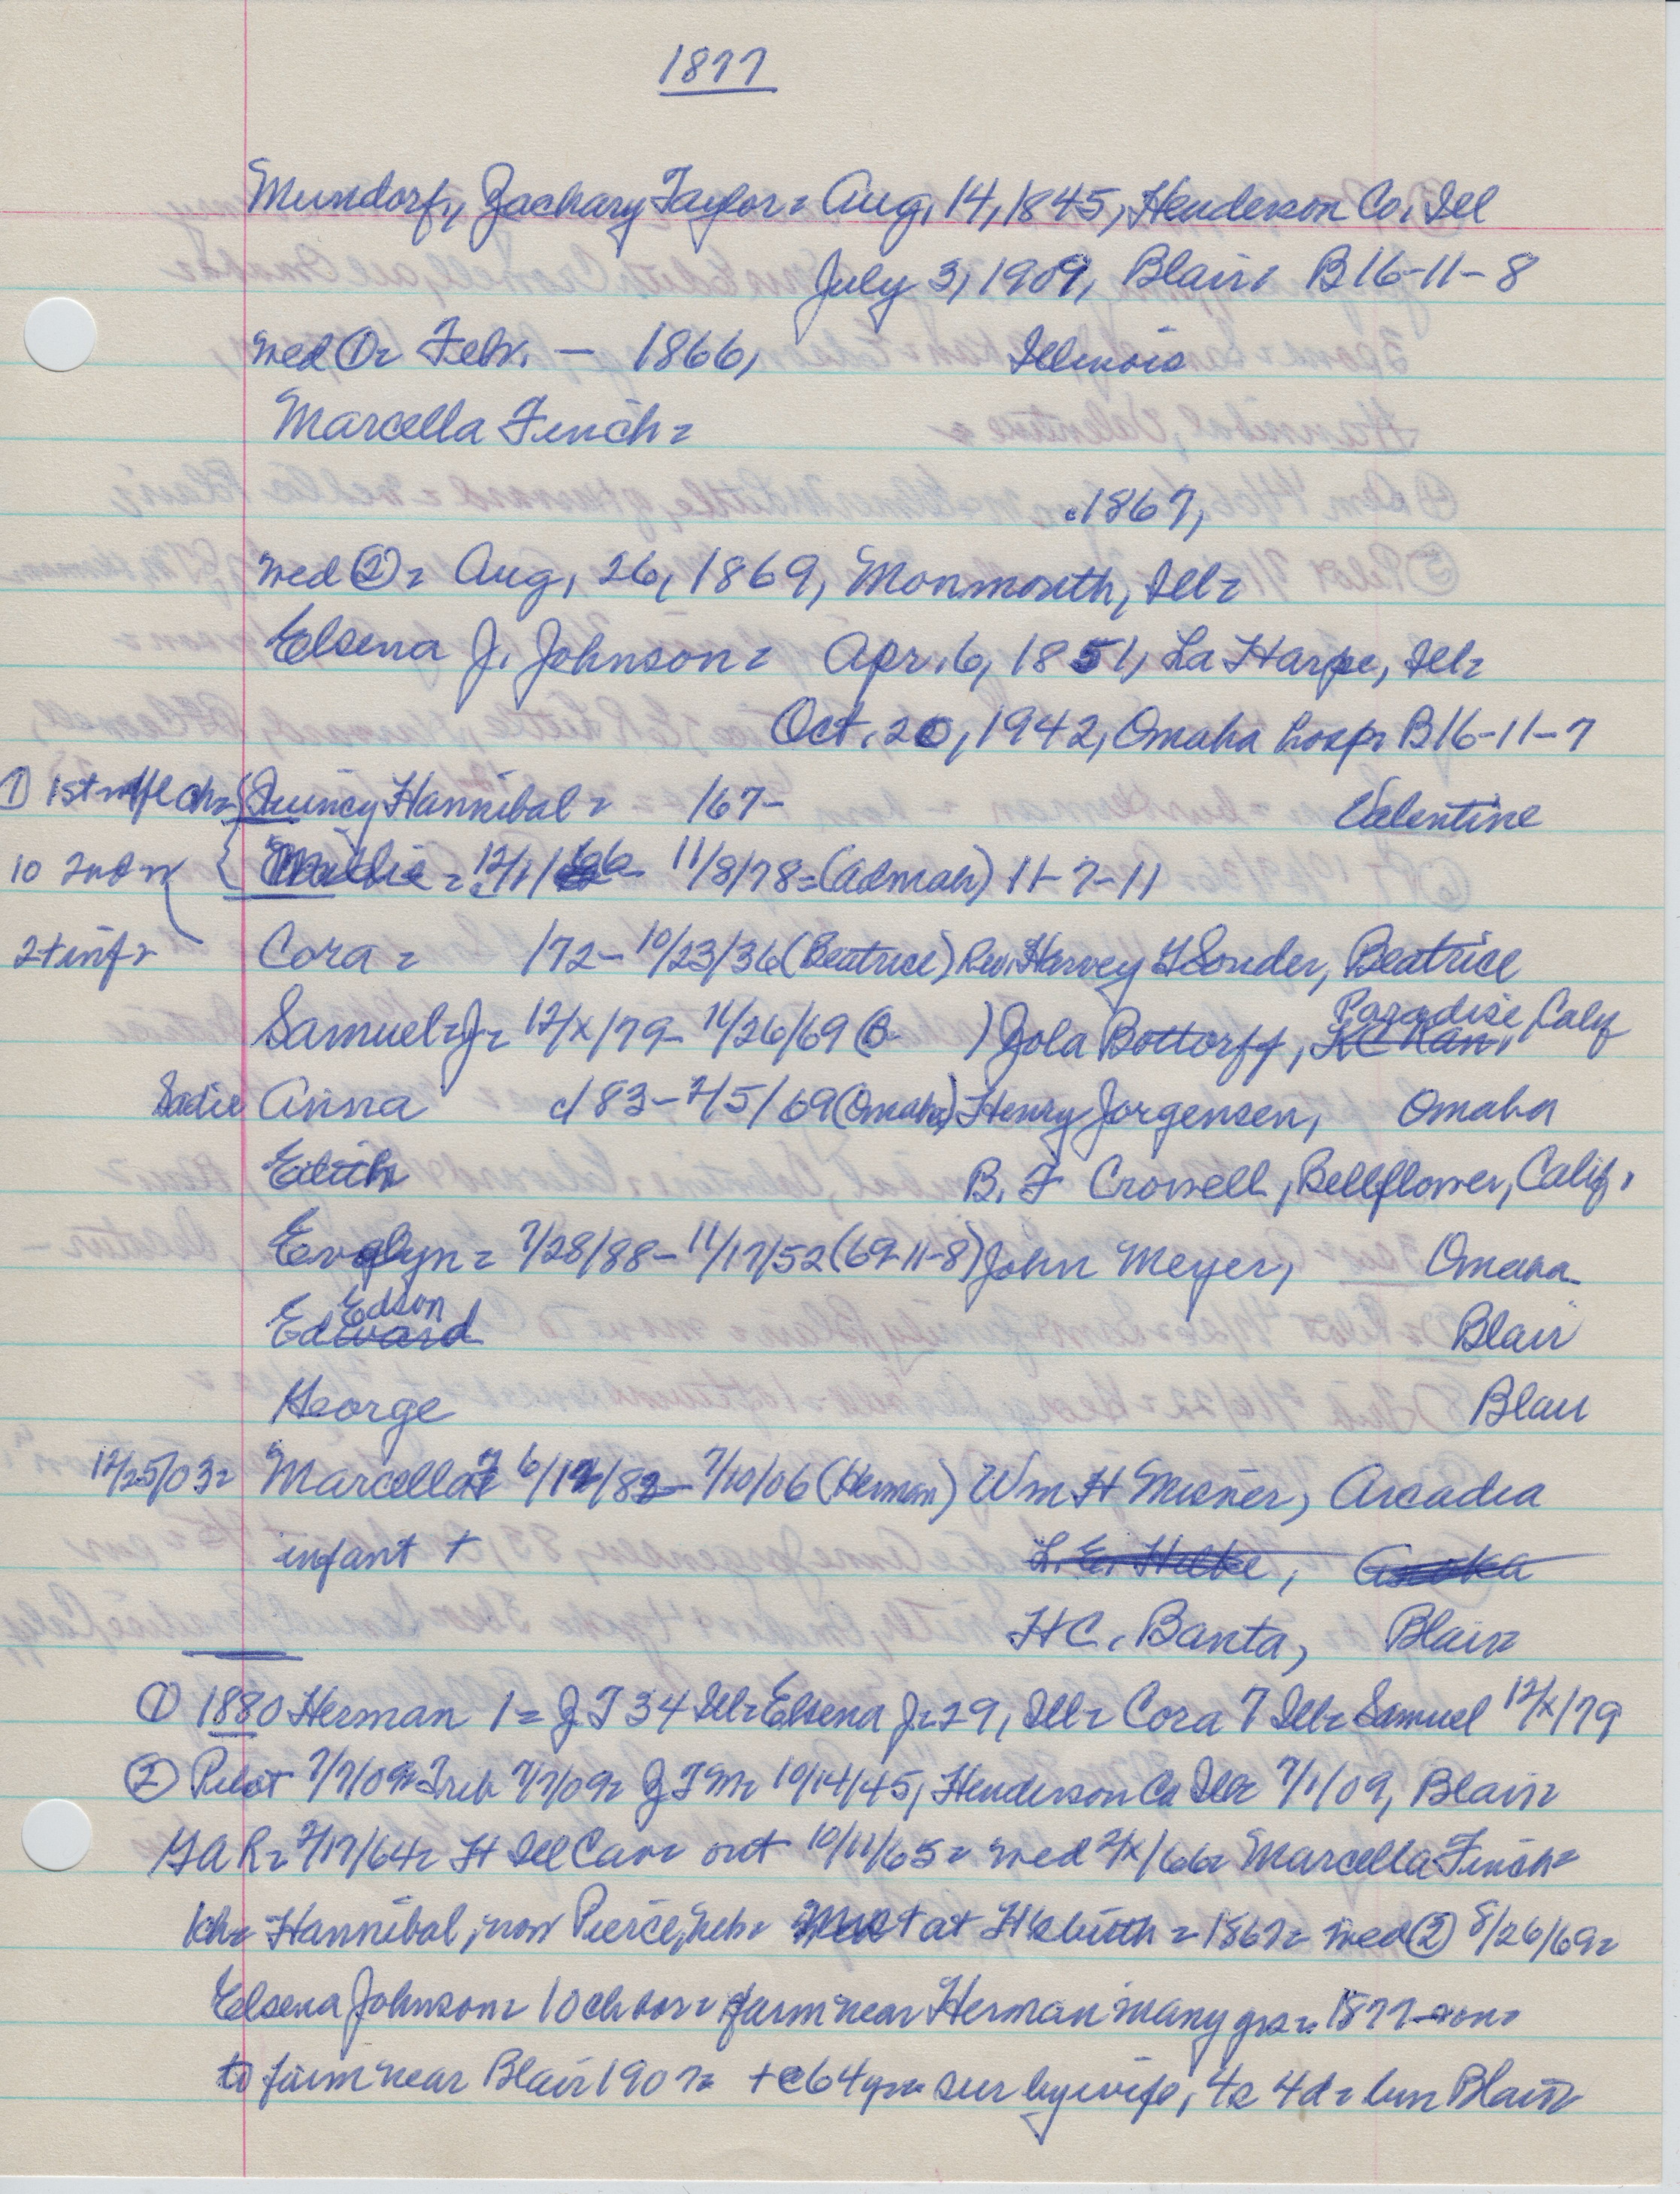 1877
Mundorf, Zachary Taylor = Aug. 14, 1845, Henderson Co. Ill
July 3, 1909, Blair = B16-11-8
med ① = Febr. — 1866, Illinois
Marcella Finch =
c1867,
med ② = Aug. 26, 1869, Monmouth, Ill =
Elsena J. Johnson = Apr. 6, 1851, La Harpe, Ill =
Oct. 20, 1942, Omaha hosp = B16-11-7
① 1st wife ch = Quincy Hannibal = 167- Valentine
10 2nd w Millie = 12/1/66 11/8/78 = (Admah) 11-7-11
2 + inf = Cora = 172- 10/23/36 (Beatrice) Rev. Harvey Y Souder, Beatrice
Samuel J = 12/x/79- 11/26/69 (B ) Zola Bottorff, KC Kan, Paradise, Calif
Sadie Anna c183- 7/5/69 (Omaha) Henry Jorgensen, Omaha
Edith B. F Crowell, Bellflower, Calif.
Evalyn = 7/28/88- 11/17/52 (69-11-8) John Meyer, Omaha
Edward Edson Blair
George Blair
12/25/03 = Marcella 6/12/82- 7/10/06 (Herman) Wm H Misner, Arcadia
infant + L. E. Hilke,
H C. Banta, Blair
① 1880 Herman 1 = Z T 34 Ill = Elsena J = 29, Ill = Cora 7 Ill = Samuel 12/x/79
② Pilot 7/7/09 = Trib 7/7/09 = Z T M = 10/14/45, Henderson Co Ill = 7/1/09, Blair =
GAR = 2/17/64 = Ill Cav = out 10/11/65 = med 2/x/66 = Marcella Finch =
1ch = Hannibal, now Pierce, Neb = + at H's birth = 1867 = med ② 8/26/69 =
Elsena Johnson = 10 ch = farm near Herman many yrs = 1877
to farm near Blair 1907 = + c64 yrs = sur by wife, 4s 4d = bur Blair